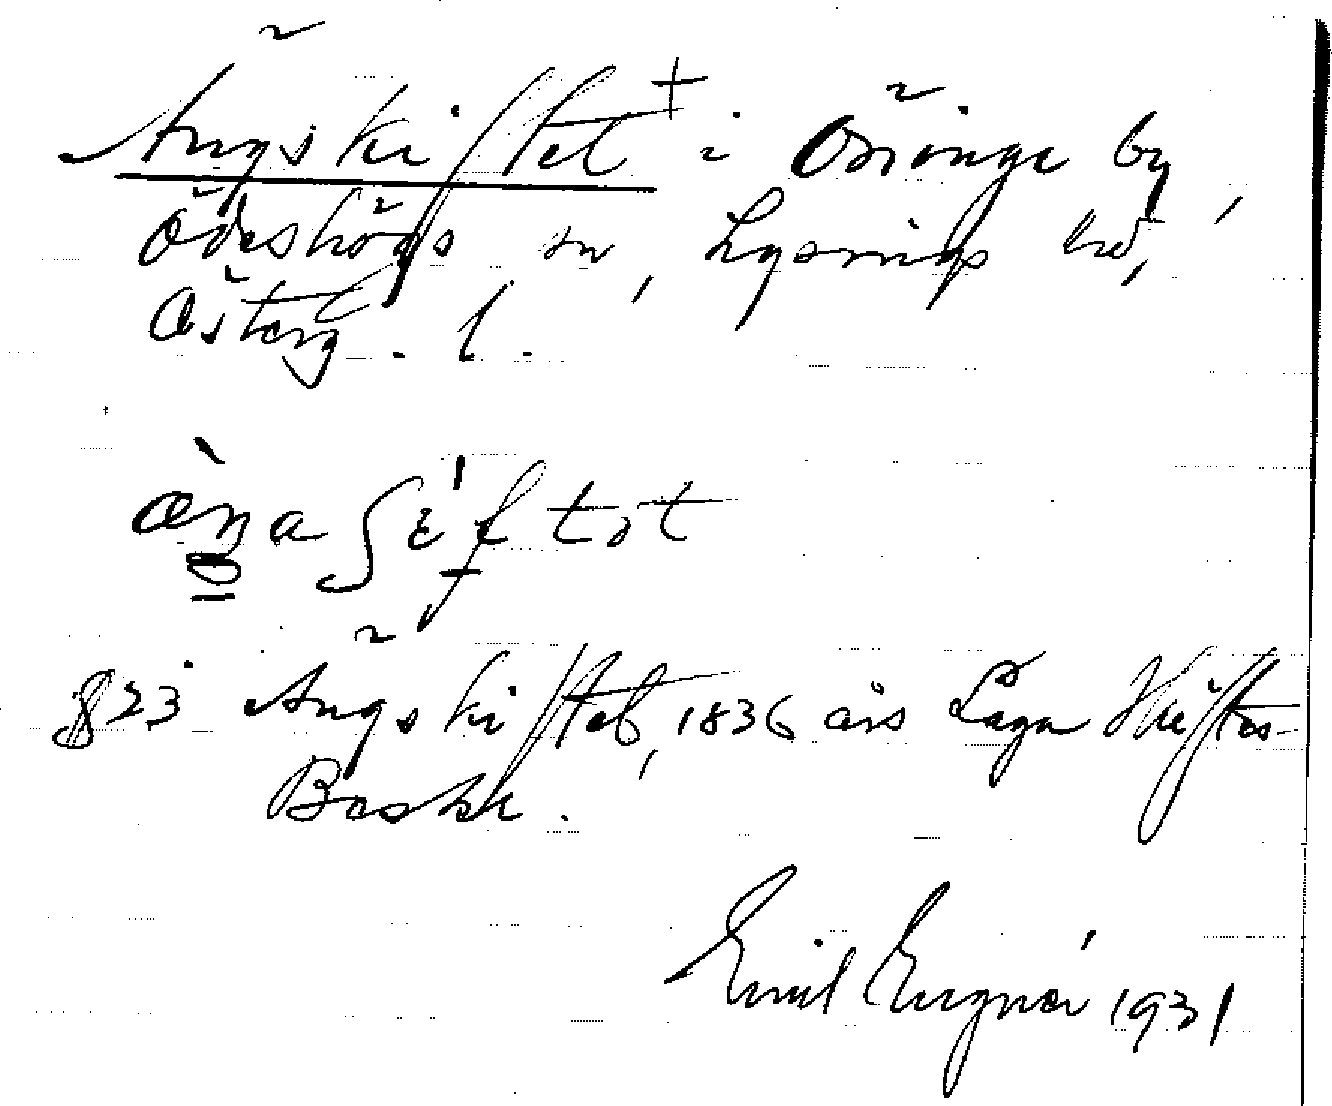 Ängskiftet + i Öninge by,
Ödeshögs sn, Lysings hd,
Österg. l.
æ̀ŋaʃɛ́ftət
§ 23 Ängskiftet, 1836 års Laga Skiftes-
Beskr.
Emil Eugnér 1931